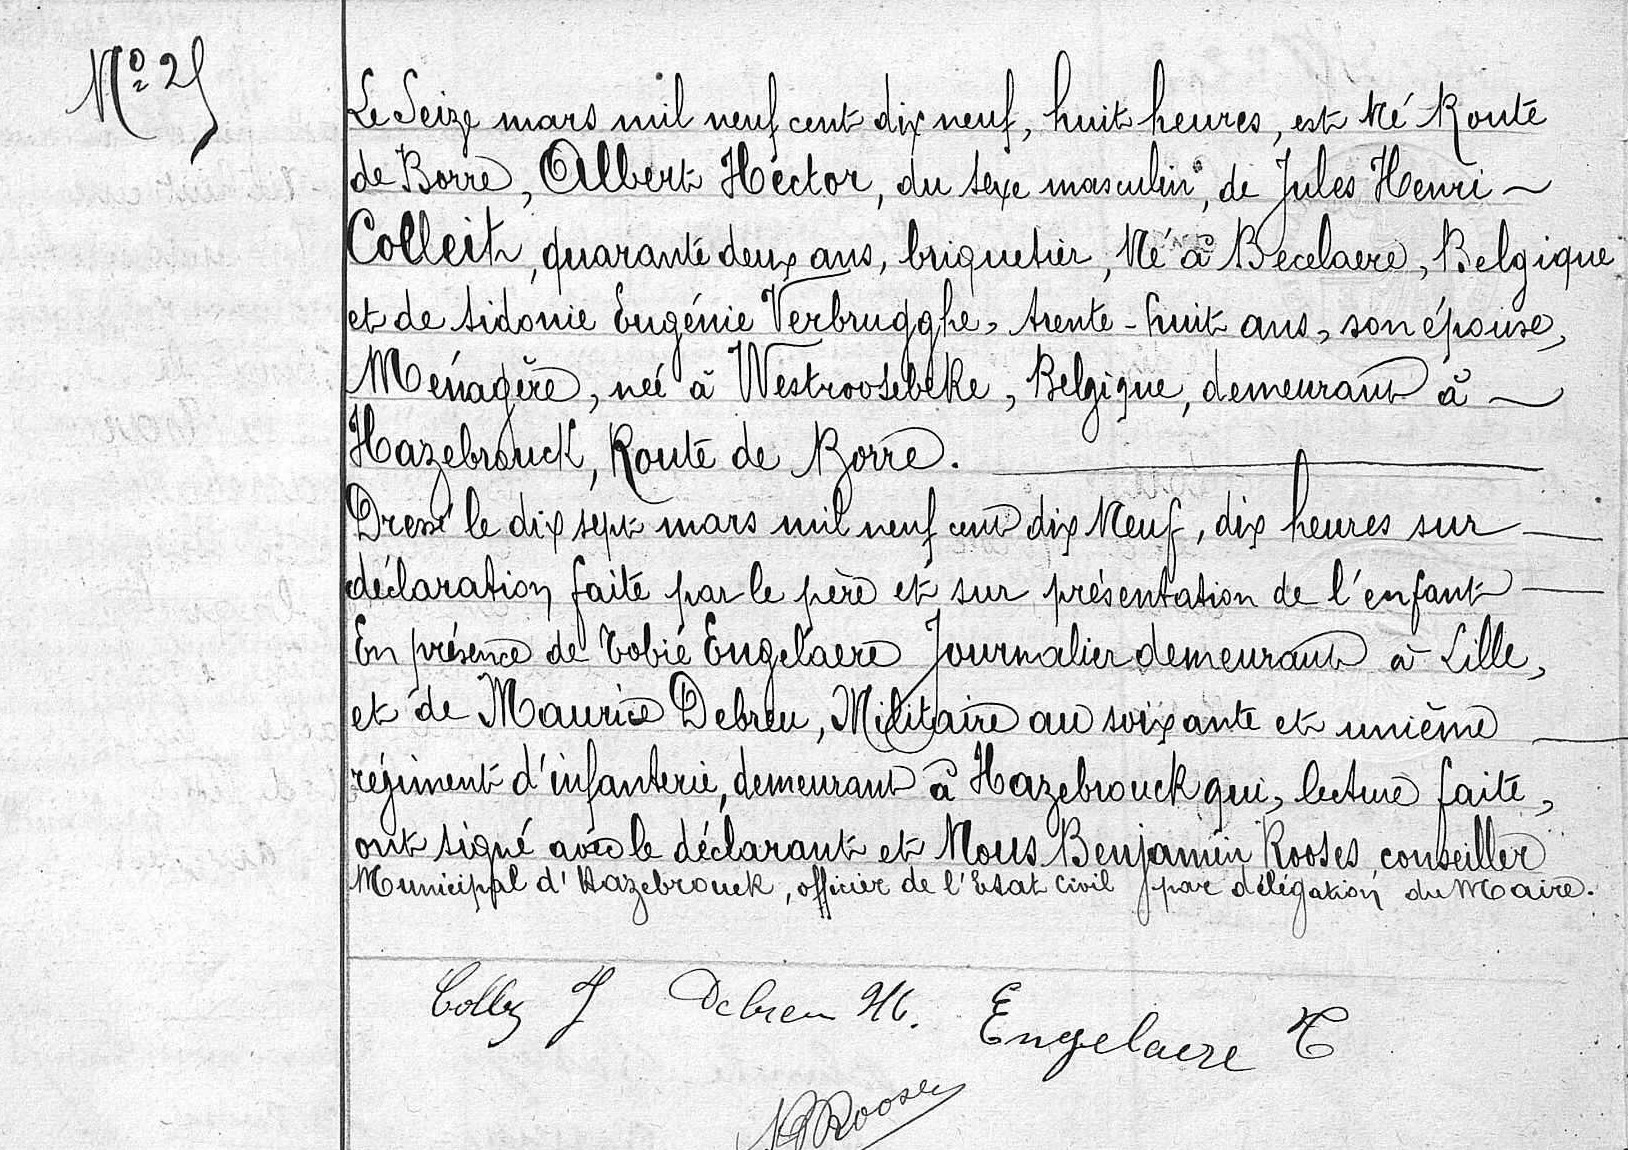 Nº 25
Le Seize mars mil neuf cent dix neuf, huit heures, est Né Route
de Borre, Albert Hector, du sexe masculin, de Jules Henri ~
Colleit, quarante deux ans, briquetier, Né à Becelaere, Belgique
et de Sidonie Eugénie Verbrugghe, trente-huit ans, son épouse,
Ménagère, neé à Westroosebeke, Belgique, demeurant à ~
Hazebrouck, Route de Borre.
Dressé le dix sept mars mil neuf cent dix Neuf, dix heures sur
déclaration faite par le père et sur présentation de l'enfant
En présence de Tobie Engelaere Journalier demeurant à Lille,
et de Maurice Debreu, Militaire au soixante et unième
régiment d'infanterie, demeurant à Hazebrouck qui, lecture faite,
ont signé avec le déclarant et Nous Benjamin Rooses conseiller
Municipal d'Hazebrouck, officier de l'Etat Civil par délégation du Maire.
J Debreu M. Engelaere T
Rooses